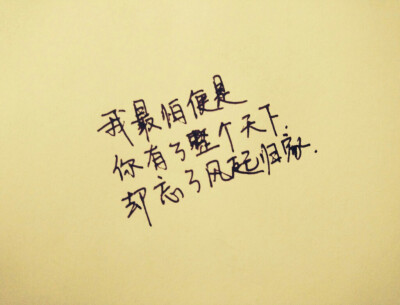 我最怕便是
你有了整个天下.
却忘了风起归家.